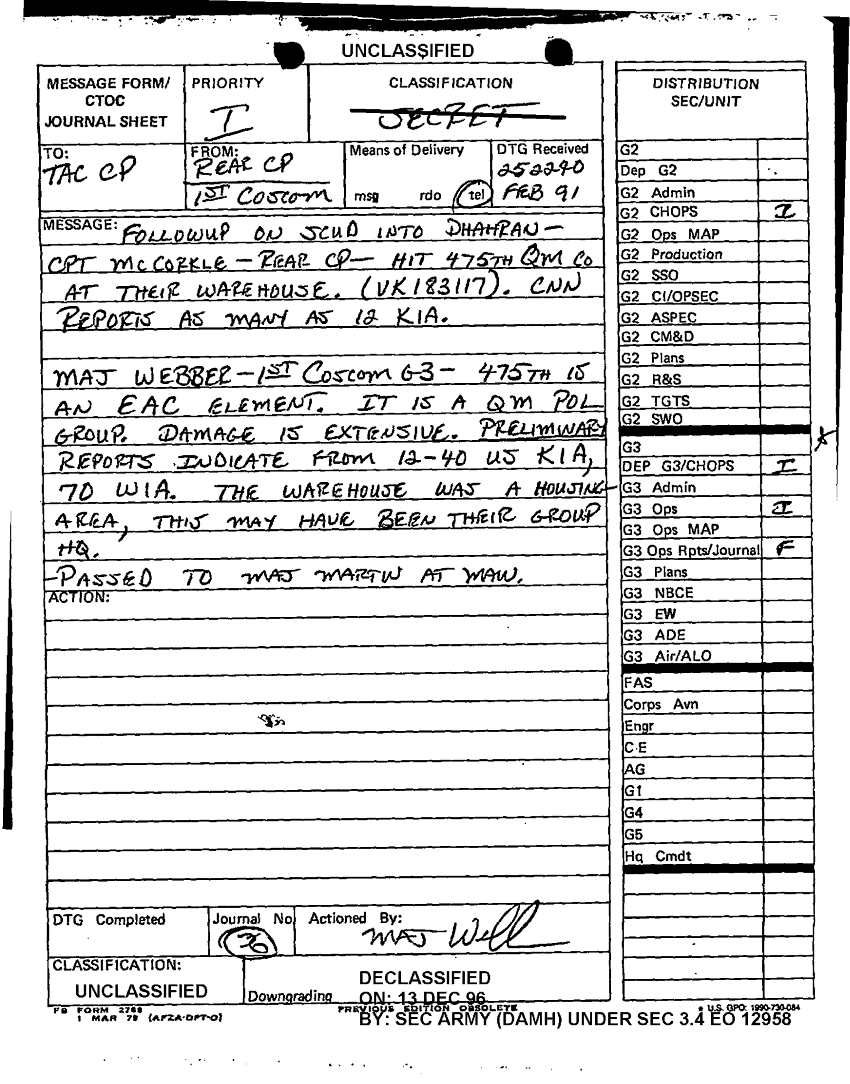 UNCLASSIFIED
MESSAGE FORM/
CTOC
JOURNAL SHEET
PRIORITY
I
CLASSIFICATION
SECRET
TO:
TAC CP
FROM:
REAR CP
1ST COSCOM
Means of Delivery
msg rdo tel
DTG Received
252240
FEB 91
MESSAGE: FOLLOWUP ON SCUD INTO DHAHRAN—
CPT MCCORKLE — REAR CP — HIT 475TH QM CO
AT THEIR WAREHOUSE. (VK183117). CNN
REPORTS AS MANY AS 12 KIA.
MAJ WEBBER — 1ST COSCOM G3 — 475TH IS
AN EAC ELEMENT. IT IS A QM POL
GROUP. DAMAGE IS EXTENSIVE. PRELIMINARY
REPORTS INDICATE FROM 12-40 US KIA,
70 WIA. THE WAREHOUSE WAS A HOUSING
AREA, THIS MAY HAVE BEEN THEIR GROUP
HQ.
-PASSED TO MAJ MARTIN AT MAW.
ACTION:
DTG Completed
Journal No.
36
Actioned By:
MAJ Will
CLASSIFICATION:
UNCLASSIFIED
Downgrading
DECLASSIFIED
ON: 13 DEC 96
BY: SEC ARMY (DAMH) UNDER SEC 3.4 EO 12958
FB FORM 2768
1 MAR 79 (AFZA-DPT-O)
PREVIOUS EDITION OBSOLETE
* U.S. GPO: 1990-730-084
DISTRIBUTION
SEC/UNIT
G2
Dep G2
G2 Admin
G2 CHOPS I
G2 Ops MAP
G2 Production
G2 SSO
G2 CI/OPSEC
G2 ASPEC
G2 CM&D
G2 Plans
G2 R&S
G2 TGTS
G2 SWO
G3
DEP G3/CHOPS I
G3 Admin
G3 Ops I
G3 Ops MAP
G3 Ops Rpts/Journal F
G3 Plans
G3 NBCE
G3 EW
G3 ADE
G3 Air/ALO
FAS
Corps Avn
Engr
C-E
AG
G1
G4
G5
Hq Cmdt